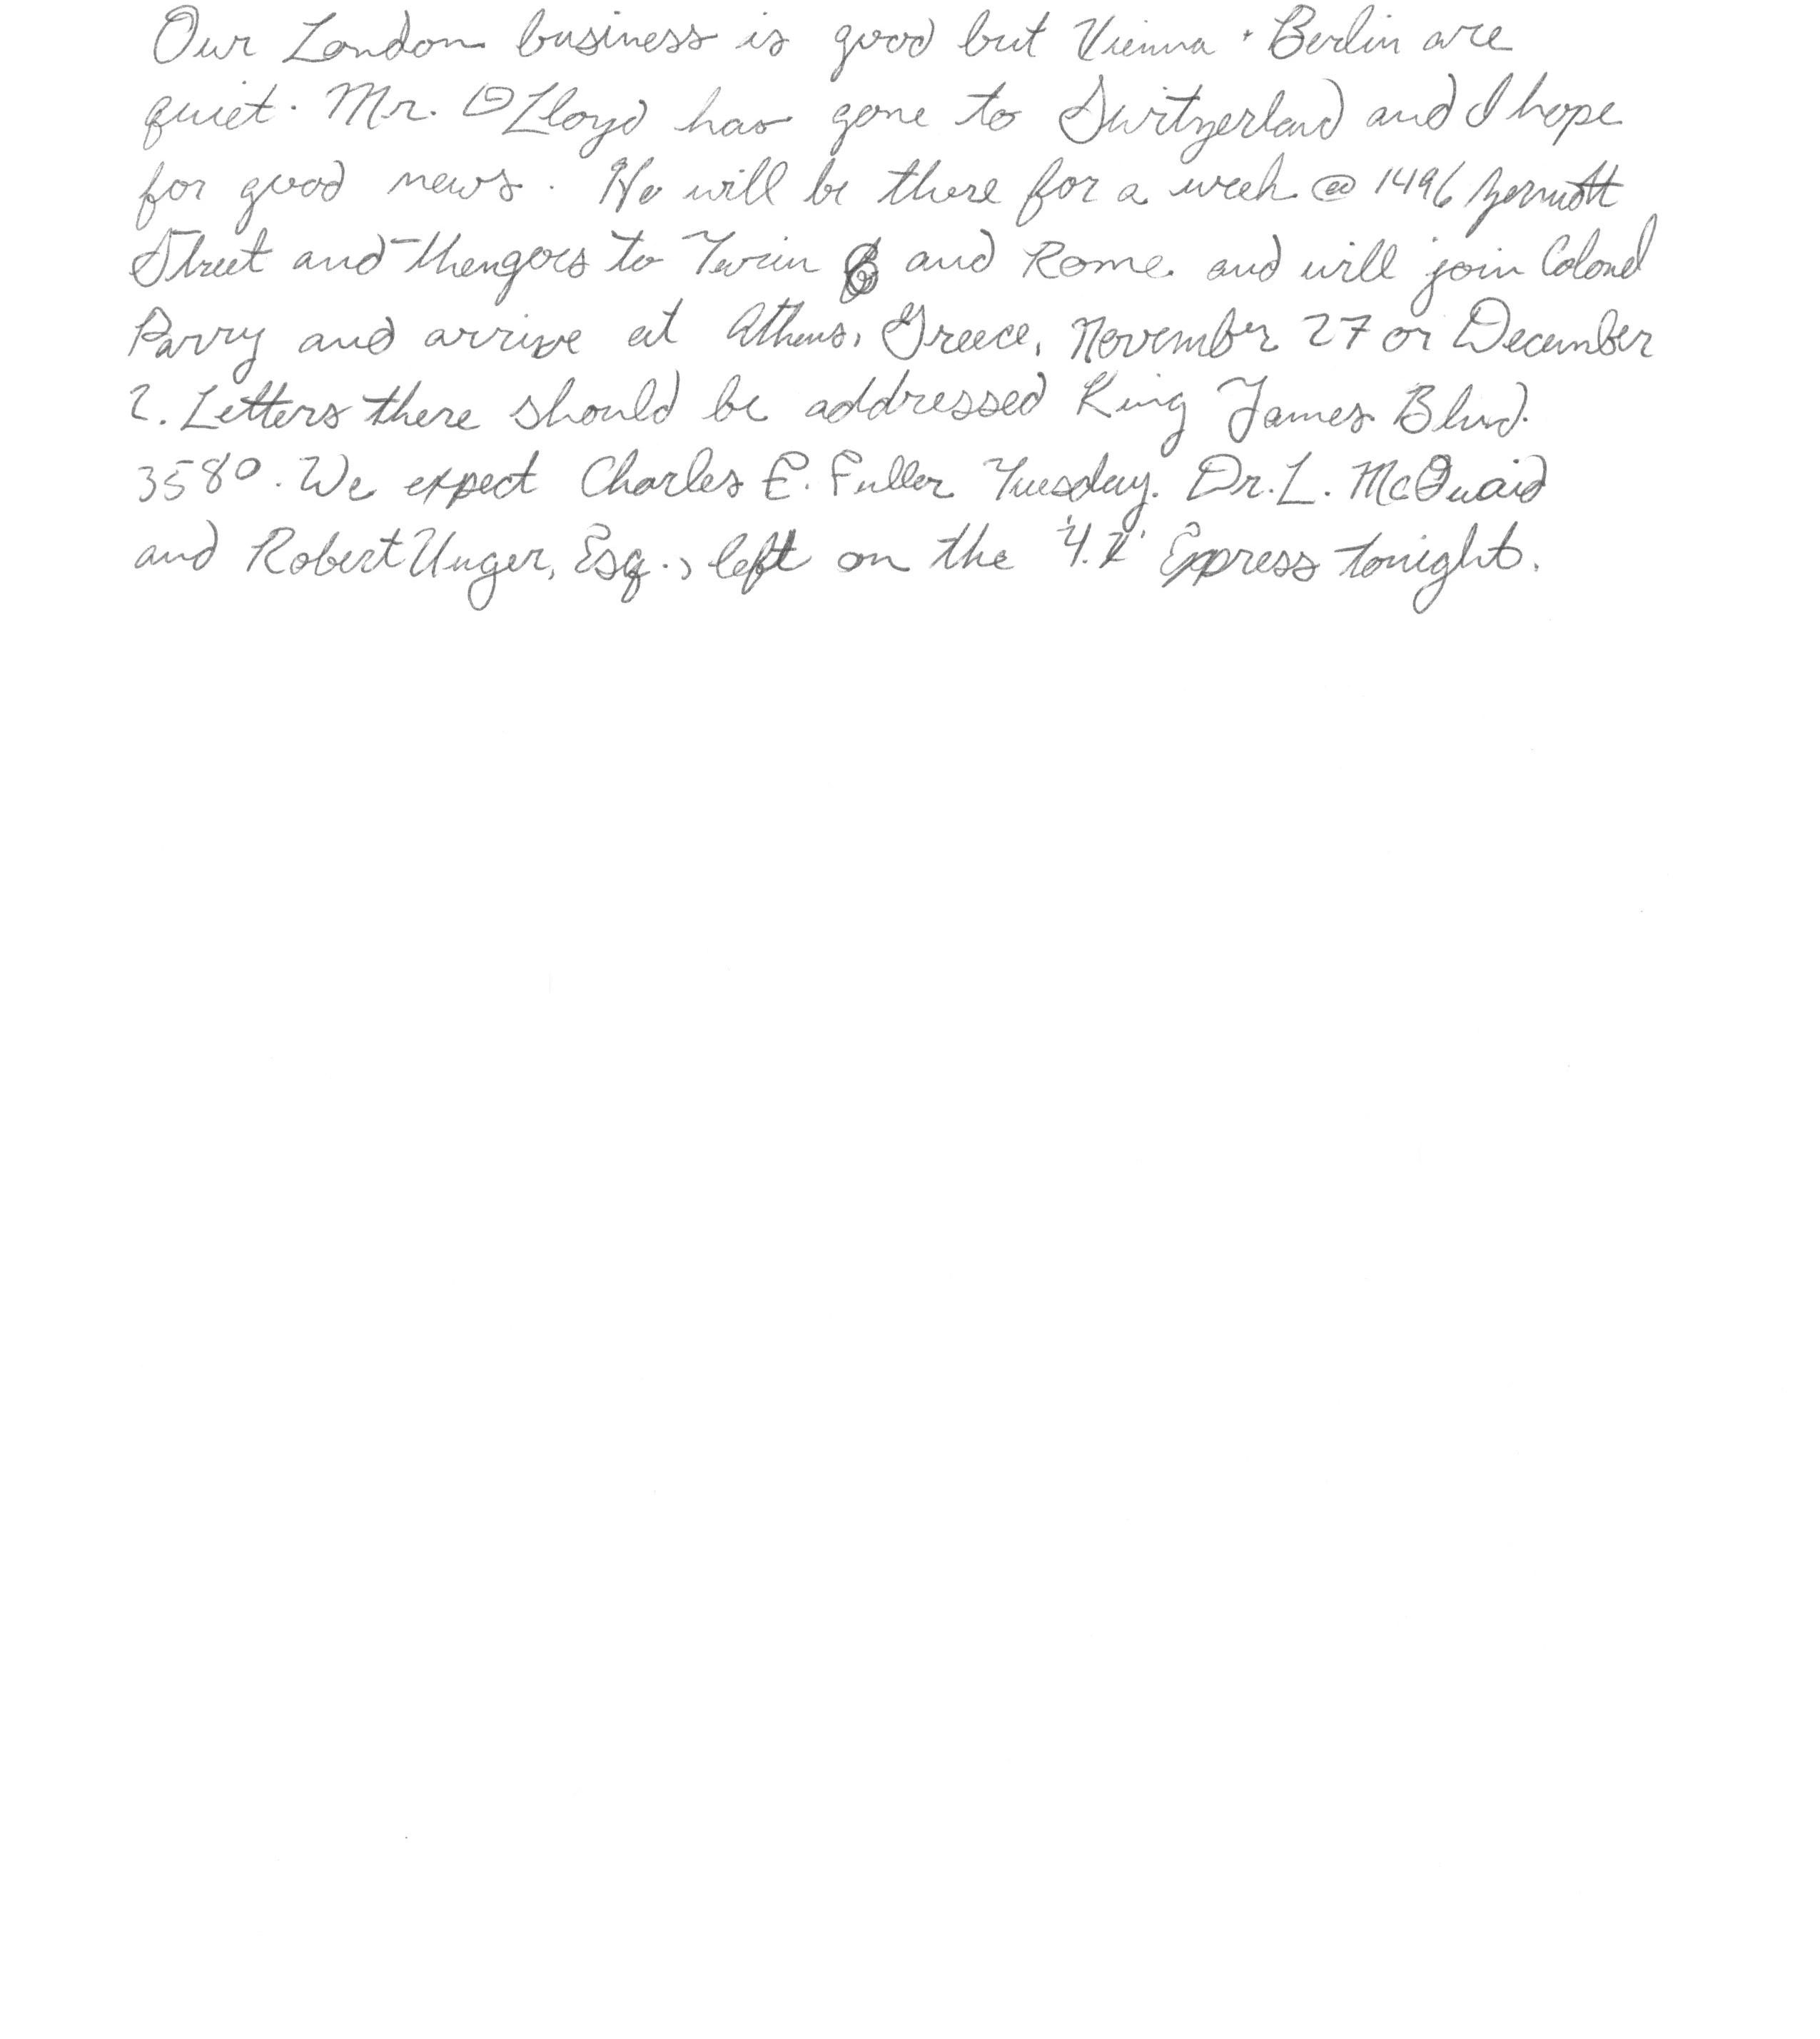 Our London business is good but Vienna + Berlin are
quiet. Mr. D Lloyd has gone to Switzerland and I hope
for good news. He will be there for a week @ 1496 Zermott
Street and then goes to Turin and Rome and will join Colonel
Parry and arrive at Athens, Greece, November 27 or December
2. Letters there should be addressed King James Blvd.
3580. We expect Charles E. Fuller Tuesday. Dr. L. McQuaid
and Robert Unger, Esq., left on the Express tonight.